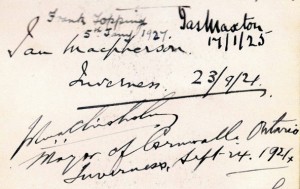 Frank Topping
5th Jany 1927.
Jas Maxton
17/1/25
Ian Macpherson.
Inverness. 23/9/21.
Chisholm
Mayor of Cornwall Ontario
Inverness, Sept 24. 1921